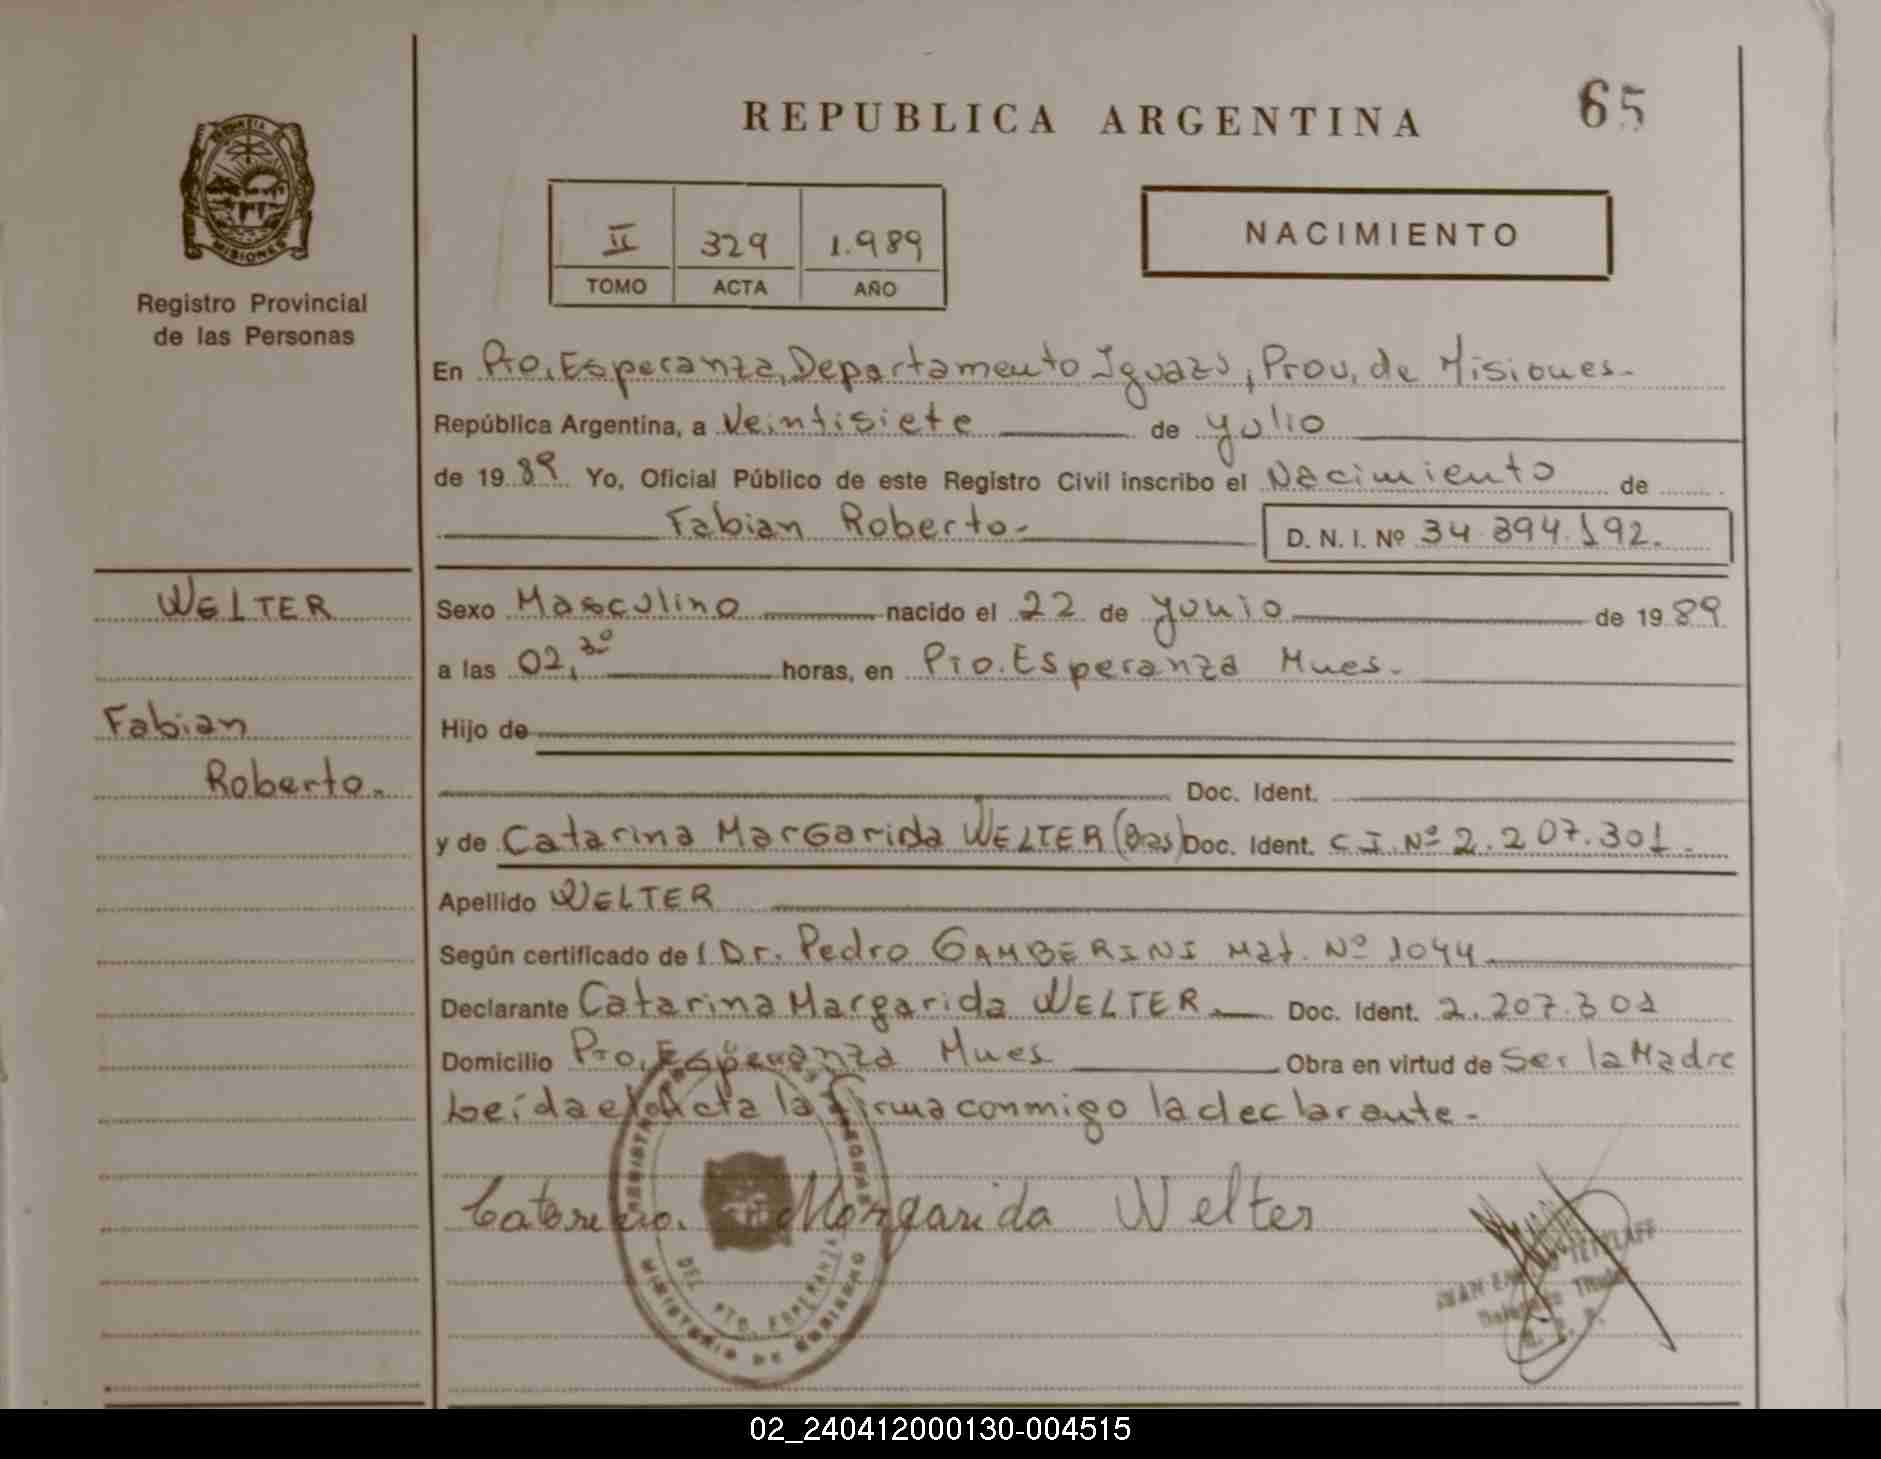 REPUBLICA ARGENTINA
65
PROVINCIA DE MISIONES
Registro Provincial
de las Personas
II 329 1.989
TOMO ACTA AÑO
NACIMIENTO
En Pto. Esperanza, Departamento Iguazú, Prov. de Misiones.
República Argentina, a Veintisiete de Julio
de 1989 Yo, Oficial Público de este Registro Civil inscribo el Nacimiento de
Fabian Roberto.- D. N. I. Nº 34.394.192.
WELTER
Fabian
Roberto.
Sexo Masculino nacido el 22 de Junio de 1989
a las 02,30 horas, en Pto. Esperanza Mnes.
Hijo de
Doc. Ident.
y de Catarina Margarida WELTER (Bras) Doc. Ident. C.I. Nº 2.207.301.
Apellido WELTER
Según certificado de l Dr. Pedro GAMBERINI Mat. Nº 1044
Declarante Catarina Margarida WELTER Doc. Ident. 2.207.301
Domicilio Pto. Esperanza Mnes Obra en virtud de Ser la Madre
Leída el Acta la firma conmigo la declarante.-
Catarina Margarida Welter
DEL PTO. ESPERANZA
MINISTERIO DE GOBIERNO
JUAN TETZLAFF
Delegado Titular
R. P. P.
02_240412000130-004515